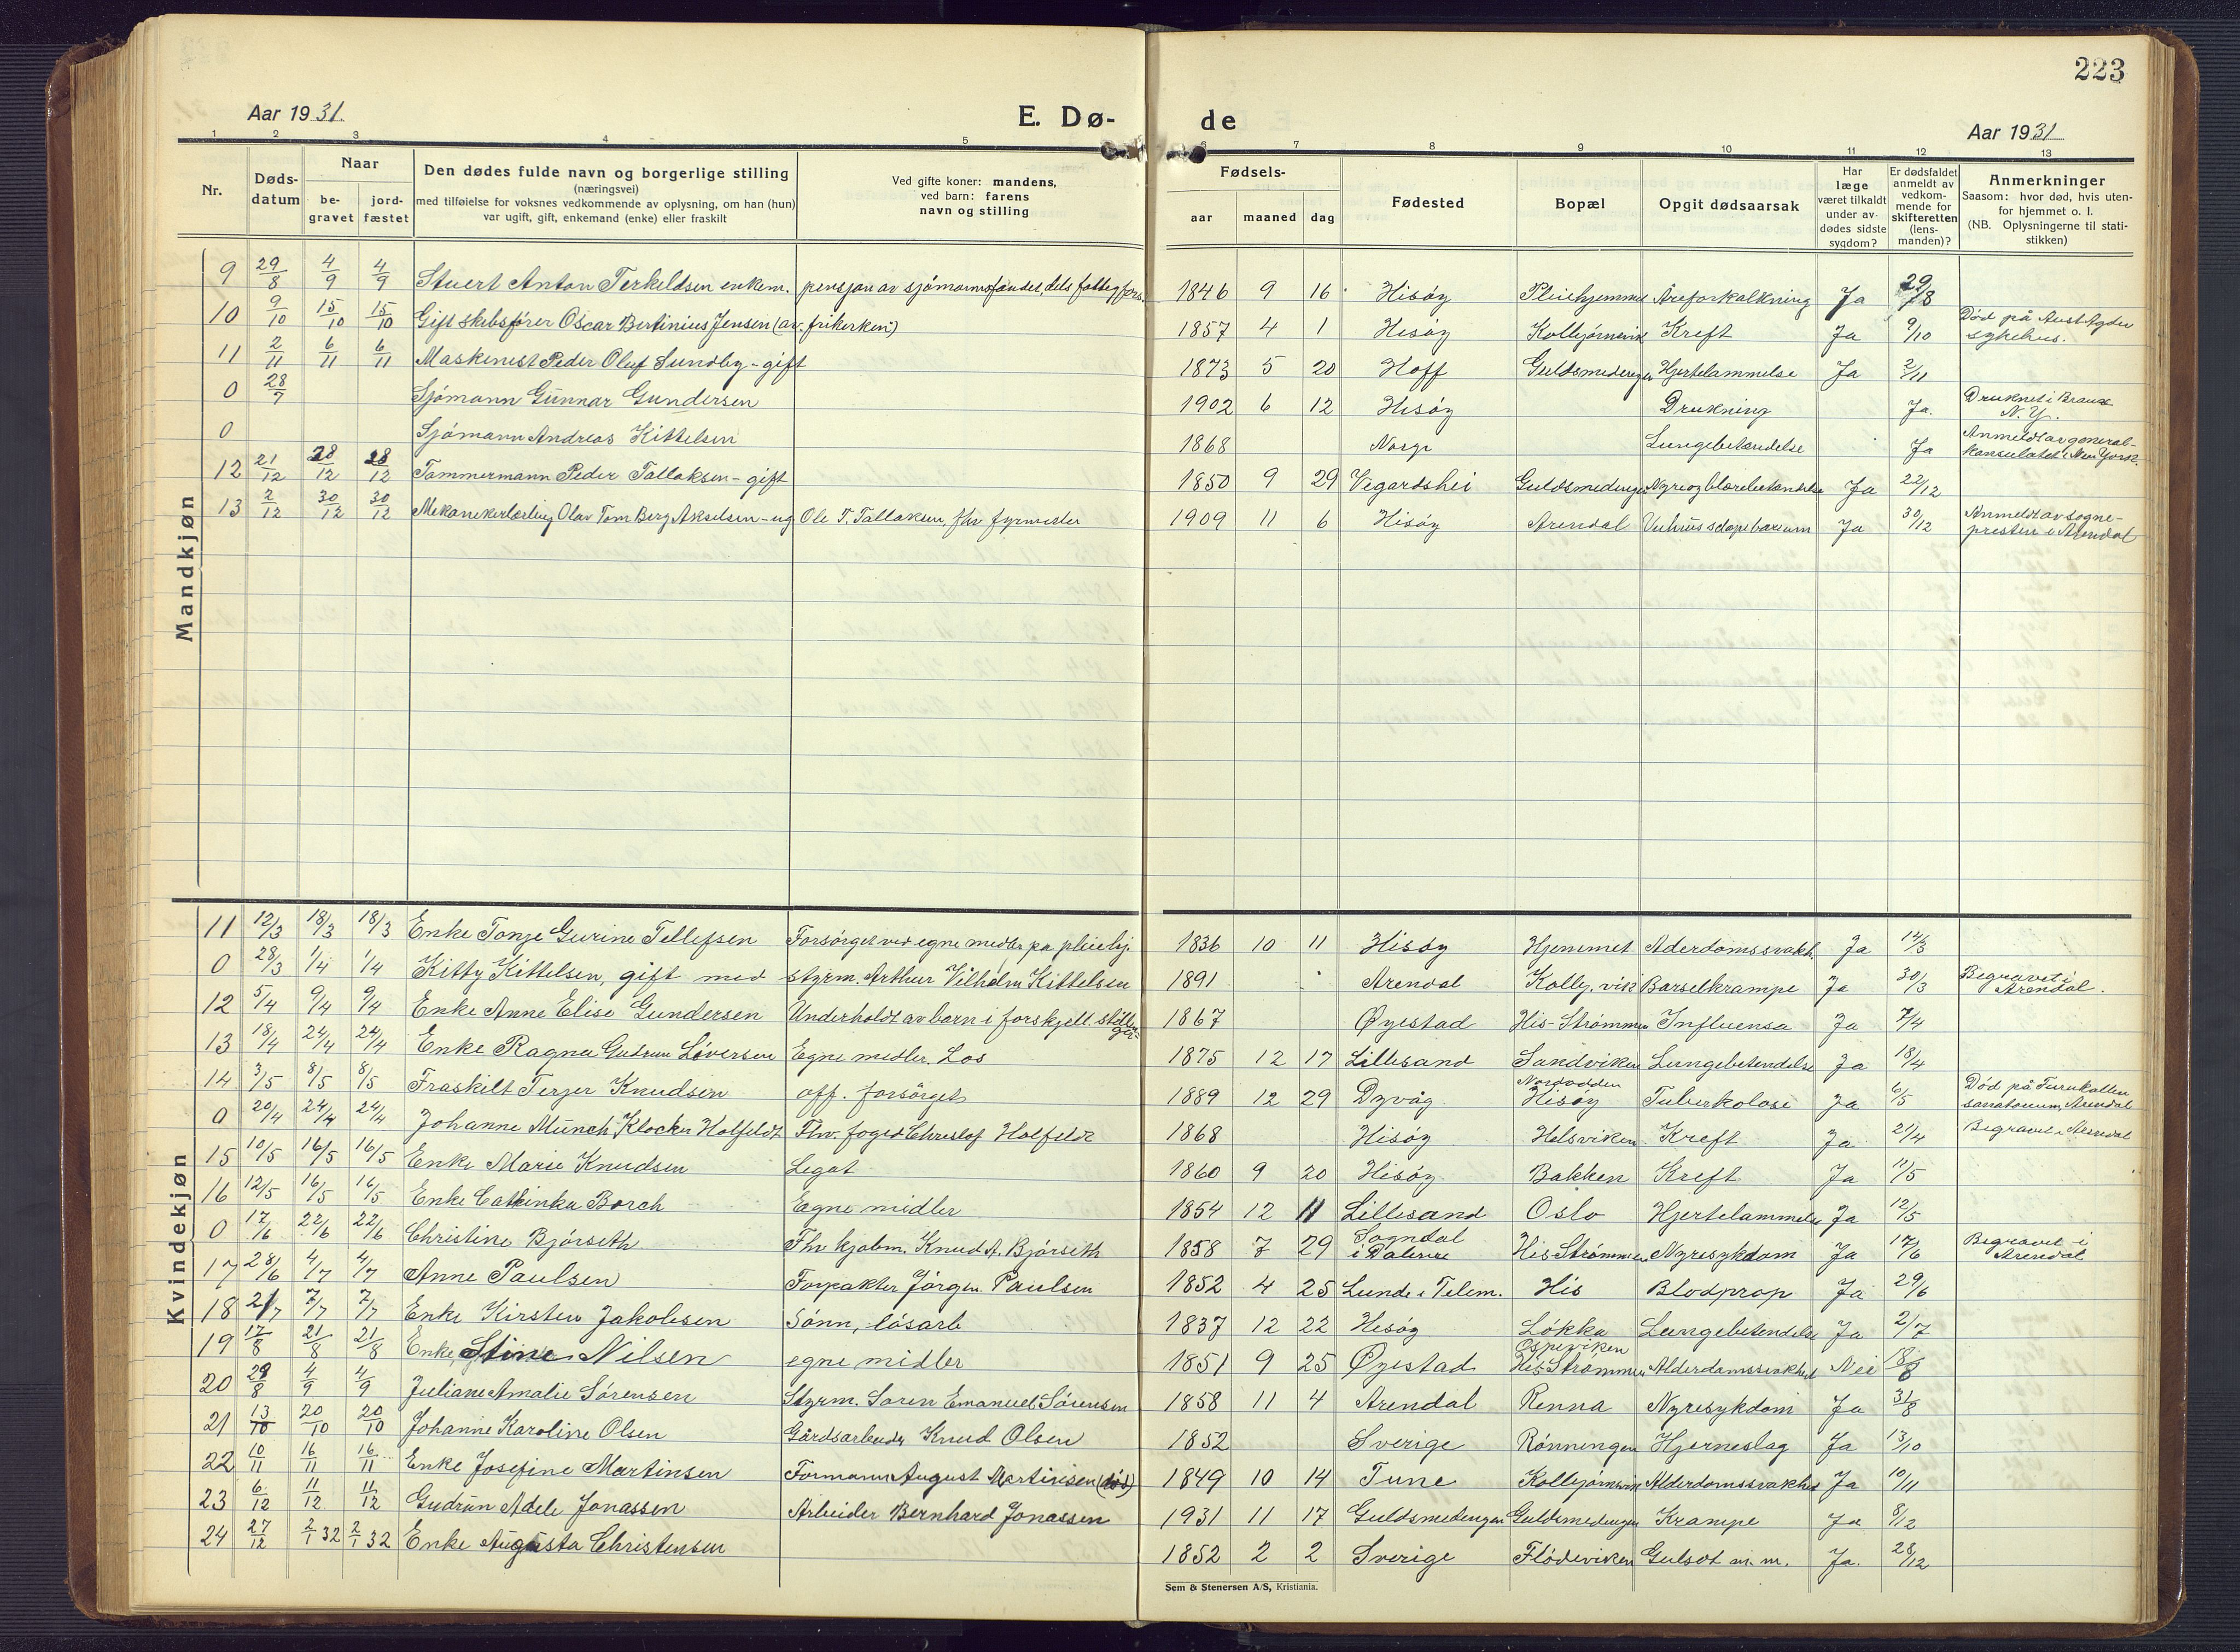 223
Aar 1931.
E. Dø-
de
Aar 1931
1 2 3 4 5 6 7 8 9 10 11 12 13
Nr.
Døds-
datum
Naar
be-
gravet
jord-
fæstet
Den dødes fulde navn og borgerlige stilling
(næringsvei)
med tilføielse for voksnes vedkommende av oplysning, om han (hun)
var ugift, gift, enkemand (enke) eller fraskilt
Ved gifte koner: mandens,
ved barn: farens
navn og stilling
Fødsels-
aar maaned dag
Fødested
Bopæl
Opgit dødsaarsak
Har
læge
været tilkaldt
under av-
dødes sidste
sygdom?
Er dødsfaldet
anmeldt av
vedkom-
mende for
skifteretten
(lens-
manden)?
Anmerkninger
Saasom: hvor død, hvis uten-
for hjemmet o. l.
(NB. Oplysningerne til stati-
stikken)
Mandkjøn
9 29/8 4/9 4/9 Stuert Anton Terkeldsen enkem. pensjon av sjömannsfondet, dels fattigfors. 1846 9 16 Hisöy Pleiehjemmet Åreforkalkning Ja 29/8
10 9/10 15/10 15/10 Gift skibsfører Oscar Bertinius Jensen (av frikirken) 1857 4 1 Hisöy Kolbjørnsvik Kreft Ja 9/10 Död på Aust-Agder sykehus.
11 2/11 6/11 6/11 Maskinist Peder Oluf Sundby - gift 1873 5 20 Hoff Guldsmedengen Hjertelammelse Ja 2/11
0 28/7 Sjömann Gunnar Gundersen 1902 6 12 Hisöy Drukning Ja. Druknet i N.Y.
0 Sjömann Andreas Kittelsen 1868 Norge Lungebetændelse Ja Anmeldt av general-konsulatet i New York.
12 21/12 28/12 28/12 Tømmermann Peder Tallaksen - gift 1850 9 29 Vegårdshei Guldsmedengen Nyre og blærebetændelse Ja 22/12
13 2/12 30/12 30/12 Mekanikerlærling Olav Tom Berg Akselsen - ug Ole T. Tallaksen, fhv fyrmester 1909 11 6 Hisöy Arendal Ja 30/12 Anmeldt av sogne-presten i Arendal
Kvindekjøn
11 12/3 18/3 18/3 Enke Tonje Gurine Tellefsen Forsörget ved egne midler på pleiehj. 1836 10 11 Hisöy Hjemmet Alderdomssvakh. Ja 14/3
0 28/3 1/4 1/4 Kitty Kittelsen, gift med styrm. Arthur Vilhelm Kittelsen 1891 Arendal Kolbj.vik Barselkrampe Ja 30/3 Begravet i Arendal.
12 5/4 9/4 9/4 Enke Anne Elise Gundersen Underholdt av barn i forskjell. stillinger 1867 Øyestad His-Strømmen Influensa Ja 7/4
13 18/4 24/4 24/4 Enke Ragna Gudrun Löversen Egne midler. Los 1875 12 17 Lillesand Sandviken Lungebetendelse Ja 18/4
14 3/5 8/5 8/5 Fraskilt Terjer Knudsen off. forsörget 1889 12 29 Dyvåg Nordodden Hisöy Tuberkolose Ja 6/5 Död på Furukollen sanatorium, Arendal
0 20/4 24/4 24/4 Johanne Münch Klocker Holfeldt Fhv. foged Christof Holfeldt 1868 Hisöy Helsviken Kreft Ja 21/4 Begravet i Arendal
15 10/5 16/5 16/5 Enke Marie Knudsen Legat 1860 9 20 Hisöy Bakken Kreft Ja 11/5
16 12/5 16/5 16/5 Enke Cathinka Borch Egne midler 1854 12 11 Lillesand Oslo Hjertelammelse Ja 12/5
0 17/6 22/6 22/6 Christine Bjórseth Fhv kjøbm. Knud A. Bjórseth 1858 7 29 Sogndal i Dalerne His Strømmen Nyresykdom Ja 17/6 Begravet i Arendal
17 28/6 4/7 4/7 Anne Paulsen Forpakter Jörgen Paulsen 1852 4 25 Lunde i Telem. His Blodprop Ja 29/6
18 2/7 7/7 7/7 Enke Kirsten Jakobsen Sönn, lösarb 1837 12 22 Hisöy Løkka Lungebetendelse Ja 2/7
19 17/8 21/8 21/8 Enke Stine Nilsen egne midler 1851 9 25 Øyestad Ospeviken His Strømmen Alderdomssvakhet Nei 18/8
20 29/8 4/9 4/9 Juliane Amalie Sörensen Styrm. Soren Emanuel Sörensen 1858 11 4 Arendal Renna Nyresykdom Ja 31/8
21 13/10 20/10 20/10 Johanne Karoline Olsen Gårdsarbeider Knud Olsen 1852 Sverige Rønningen Hjerneslag Ja 13/10
22 10/11 16/11 16/11 Enke Josefine Martinsen Formann August Martinsen (död) 1849 10 14 Tune Kolbjørnsvik Alderdomssvakhet Ja 10/11
23 6/12 11/12 11/12 Gudrun Adele Jonassen Arbeider Bernhard Jonassen 1931 11 17 Guldsmedengen Guldsmedengen Krampe Ja 8/12
24 27/12 2/1 32 2/1 32 Enke Augusta Christensen 1852 2 2 Sverige Flødeviken Gulsot m.m. Ja. 28/12
Sem & Stenersen A/S, Kristiania.